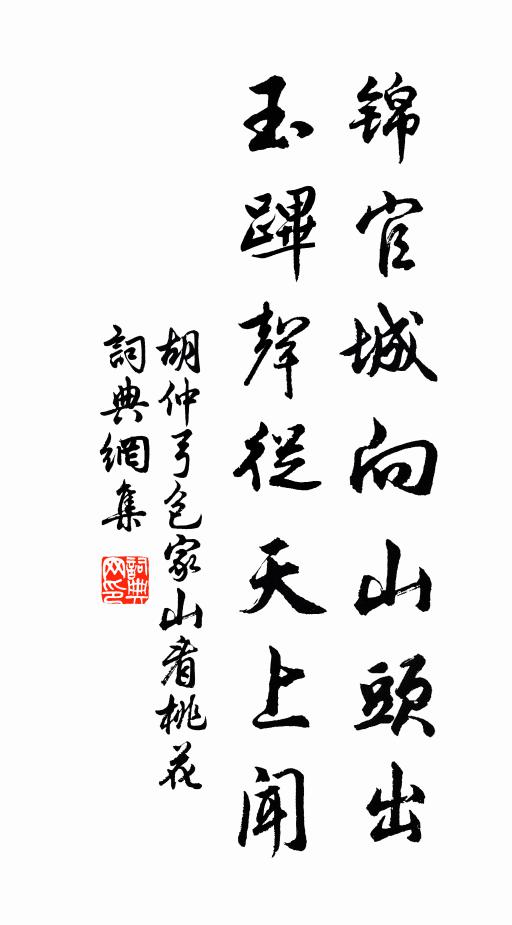 錦官城向山頭出
玉蹕聲從天上聞
胡仲弓包家山看桃花
詞典網集
詞典网印